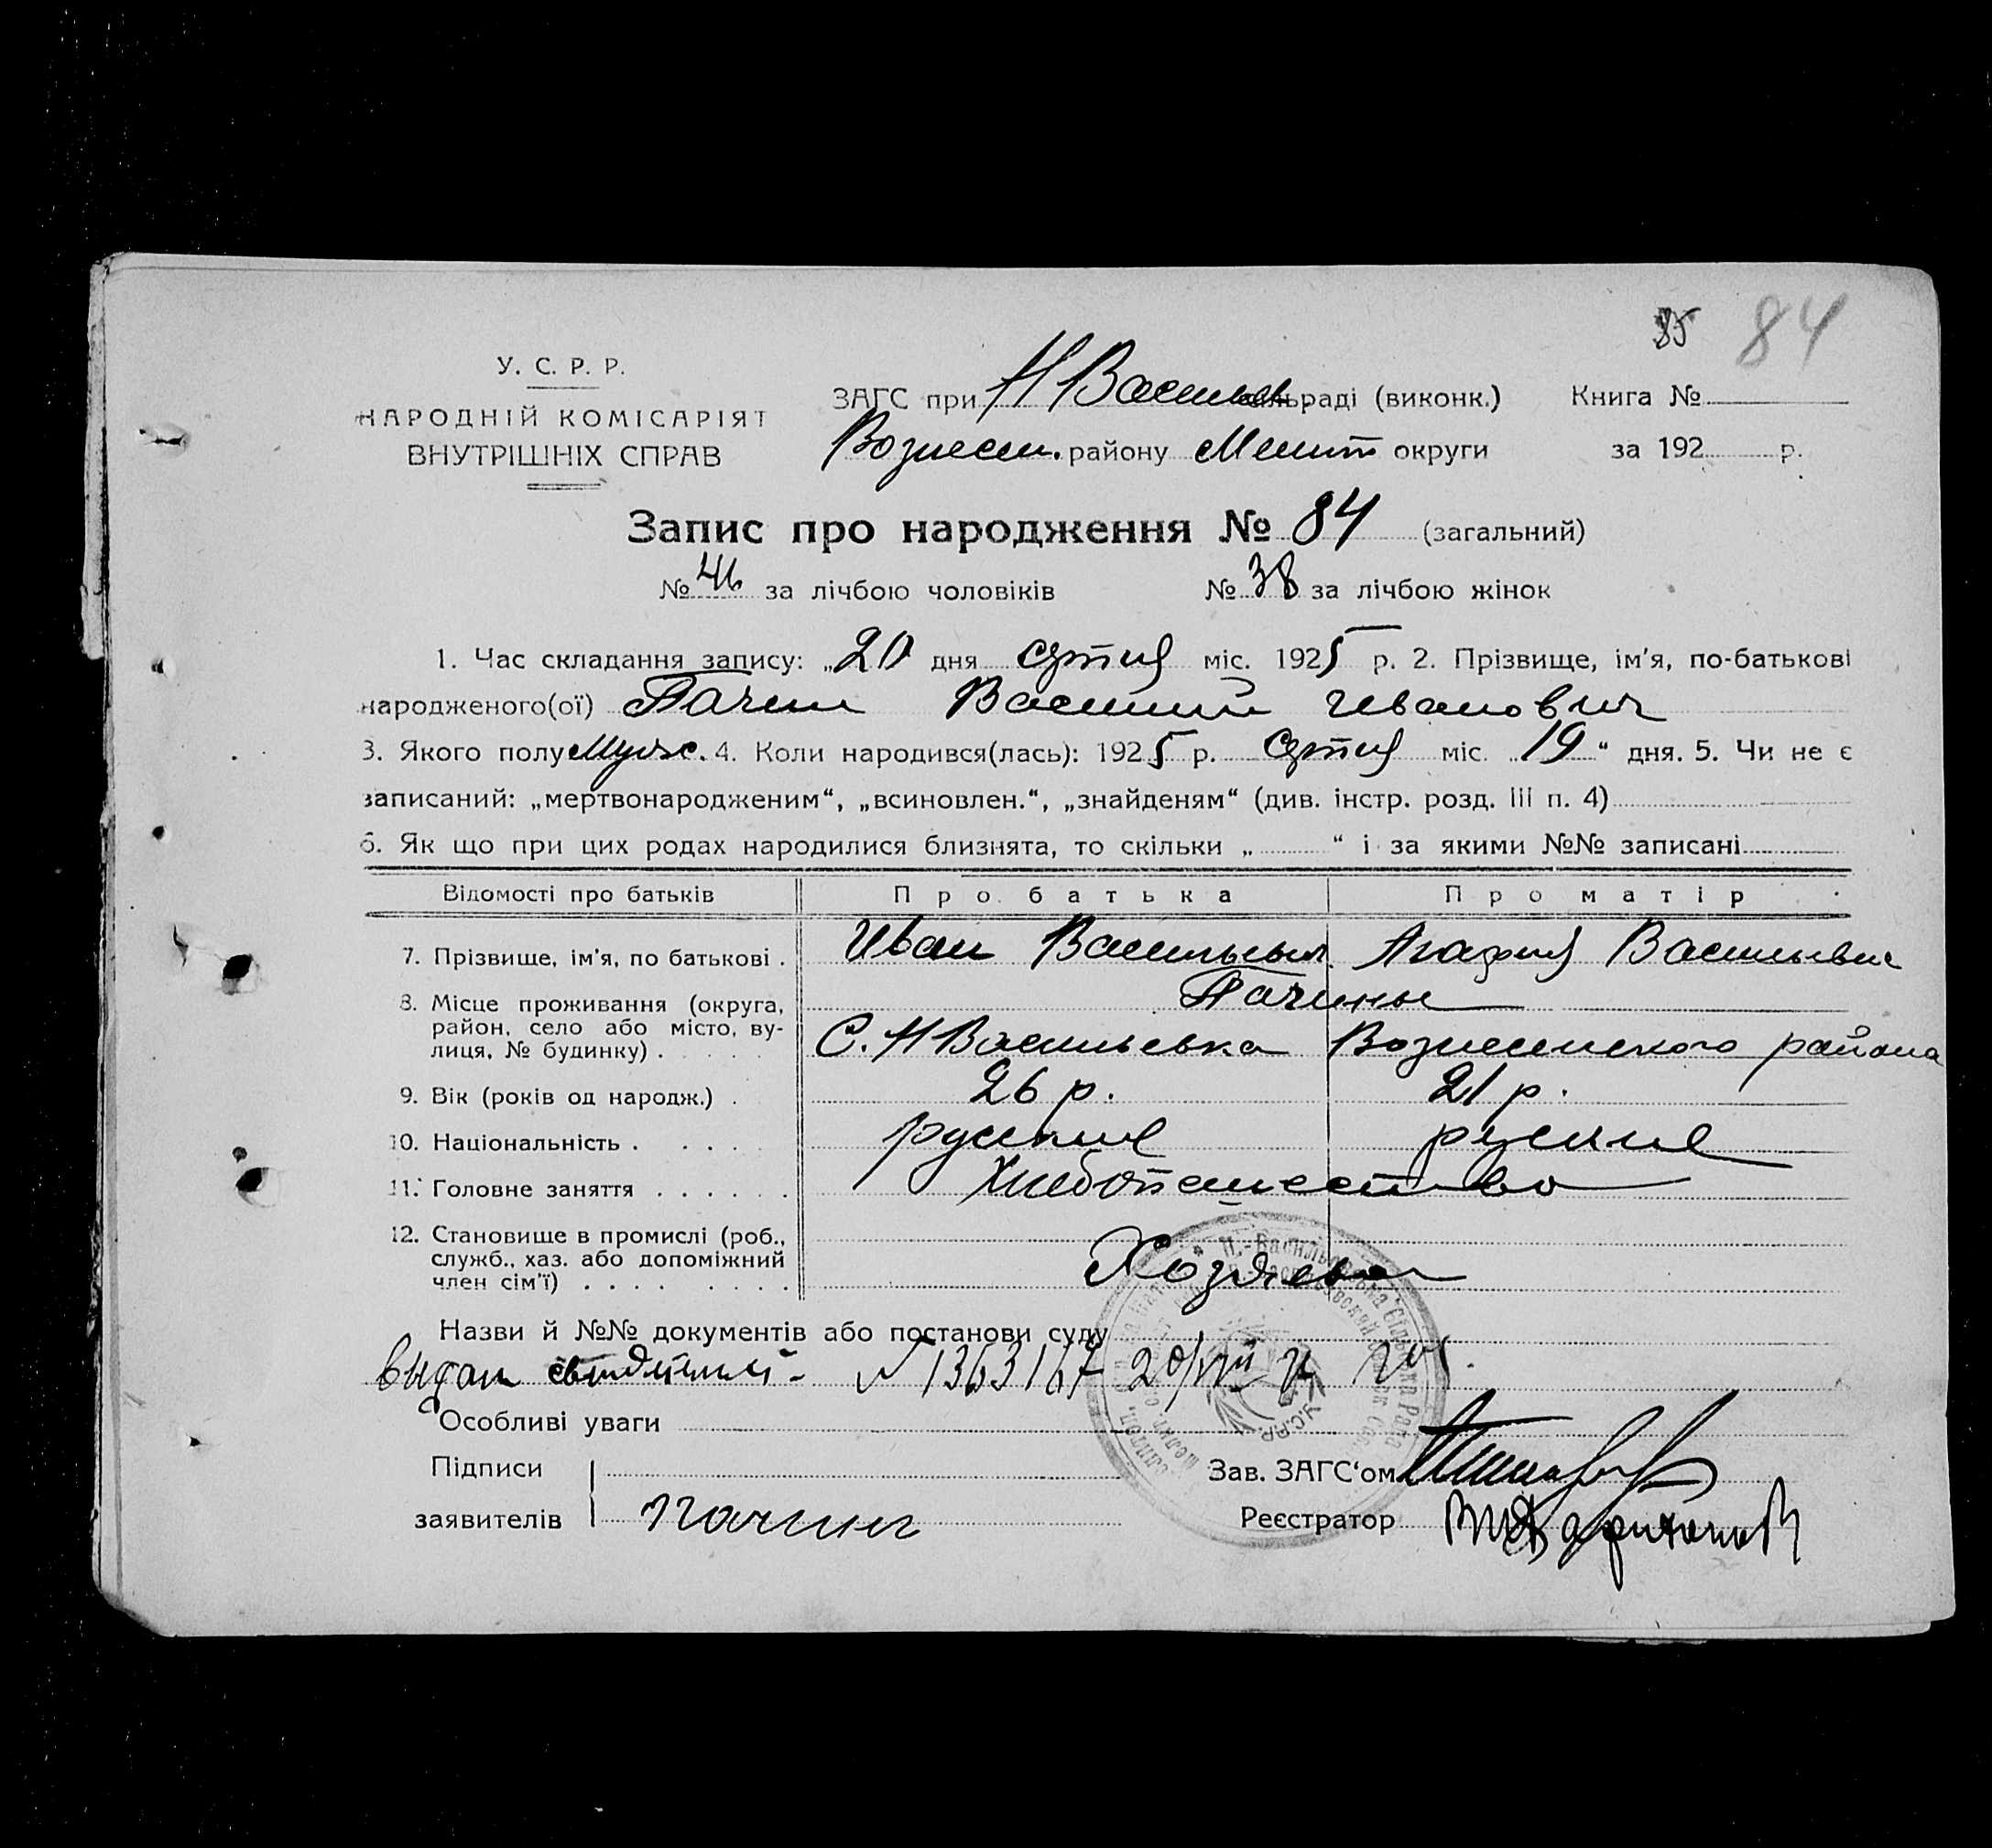 85 84
У. С. Р. Р.
НАРОДНІЙ КОМІСАРІЯТ
ВНУТРІШНІХ СПРАВ
ЗАГС при Н Васильев. сільраді (виконк.) Книга №
Вознесен. району Мелит округи за 192 р.
Запис про народження № 84 (загальний)
№ 46 за лічбою чоловіків № 38 за лічбою жінок
1. Час складання запису: „20 дня сдтня міс. 1925 р. 2. Прізвище, ім’я, по-батькові
народженого(ої) Пачин Василий Иванович
3. Якого полу Мужс. 4. Коли народився(лась): 1925 р. Сдтня міс. „19“ дня. 5. Чи не є
записаний: „мертвонародженим“, „всиновлен.“, „знайденям“ (див. інстр. розд. III п. 4)
6. Як що при цих родах народилися близнята, то скільки „ “ і за якими №№ записані
Відомості про батьків Про батька Про матір
7. Прізвище, ім’я, по батькові . Иван Васильевич. Агафия Васильевна
Пачины
8. Місце проживання (округа,
район, село або місто, ву-
лиця, № будинку) . С. Н Васильевка Вознесенского района
9. Вік (років од народж.) . 26 р. 21 р.
10. Національність . русские русские
11. Головне заняття . Хлебопашество
12. Становище в промислі (роб.,
служб., хаз. або допоміжний
член сім’ї) . Хозяева
Назви й №№ документів або постанови суду
выдан № 1363167 20/VIII
Особливі уваги
Підписи
заявителів Пачин
Зав. ЗАГС‘ом
Реєстратор
Н.-Васильевська Сільска Рада
У.С.Р.Р.